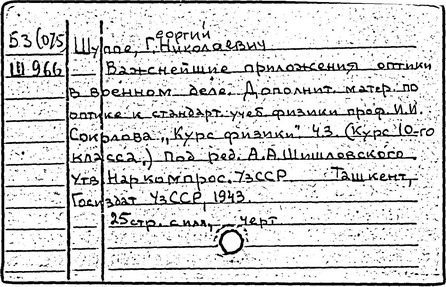 53(075
Ш 966
Шуппе, Георгий Николаевич
Важнейшие приложения оптики
в военном деле. Дополнит. матер. по
оптике к стандарт. учеб. физики проф. И.И.
Соколова „Курс физики" ч.3. (Курс 10-го
класса.) Под ред. А.А. Шишловского
Утв. Наркомпрос. УзССР Ташкент,
Госиздат УзССР, 1943.
25 стр. с илл., черт